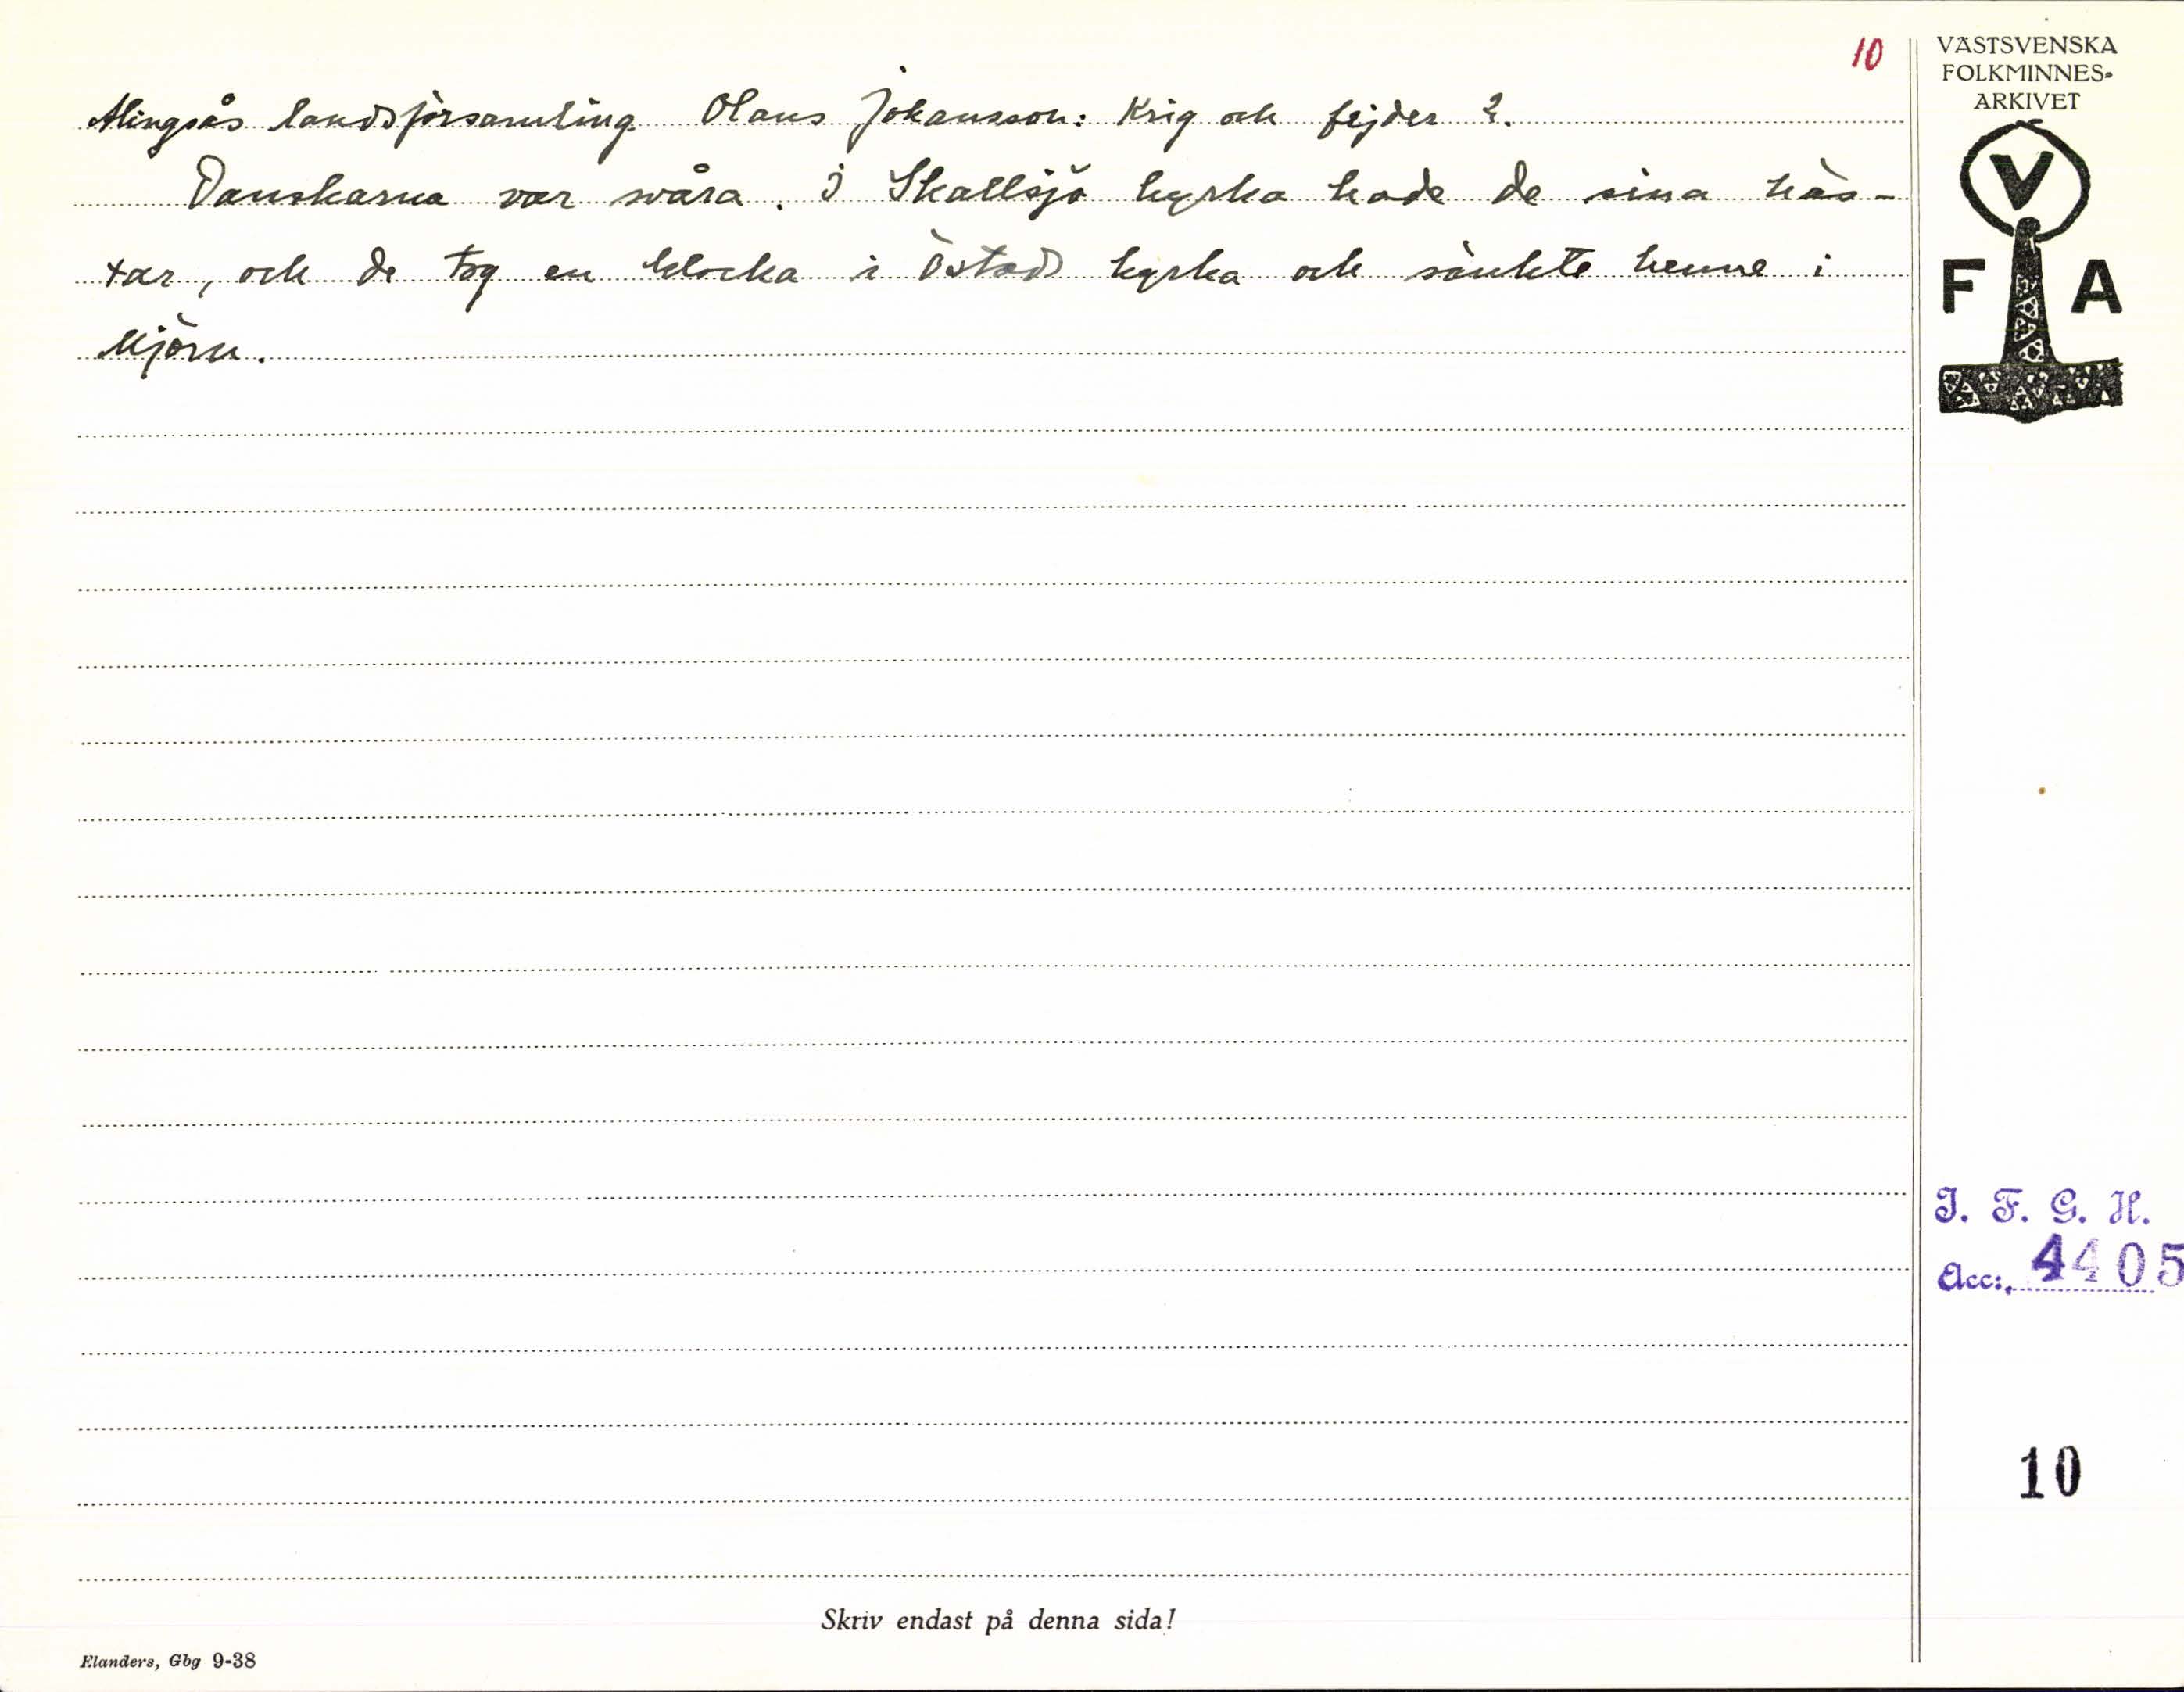 10
Alingsås landsförsamling Olaus Johansson: Krig och fejder 2.
Danskarna var svåra. I Skallsjö kyrka hade de sina häs-
tar, och de tog en klocka i Östad kyrka och sänkte henne i
Mjörn.
VÄSTSVENSKA
FOLKMINNES-
ARKIVET
V
F A
I. F. G. H.
Acc: 4405
10
Skriv endast på denna sida!
Elanders, Gbg 9-38